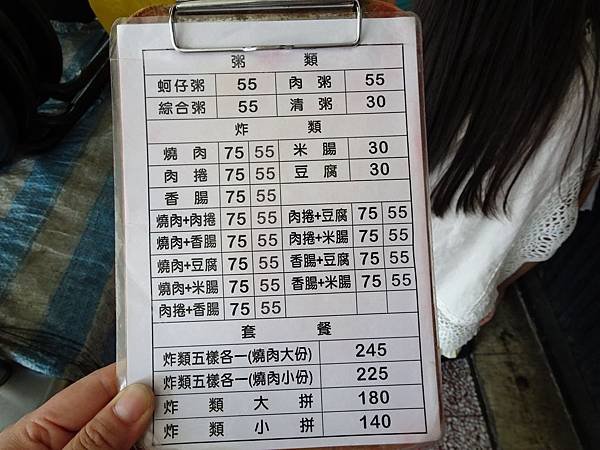 粥 類
蚵仔粥 55 肉粥 55
綜合粥 55 清粥 30
炸 類
燒肉 75 55 米腸 30
肉捲 75 55 豆腐 30
香腸 75 55
燒肉+肉捲 75 55 肉捲+豆腐 75 55
燒肉+香腸 75 55 肉捲+米腸 75 55
燒肉+豆腐 75 55 香腸+豆腐 75 55
燒肉+米腸 75 55 香腸+米腸 75 55
肉捲+香腸 75 55
套 餐
炸類五樣各一(燒肉大份) 245
炸類五樣各一(燒肉小份) 225
炸類大拼 180
炸類小拼 140